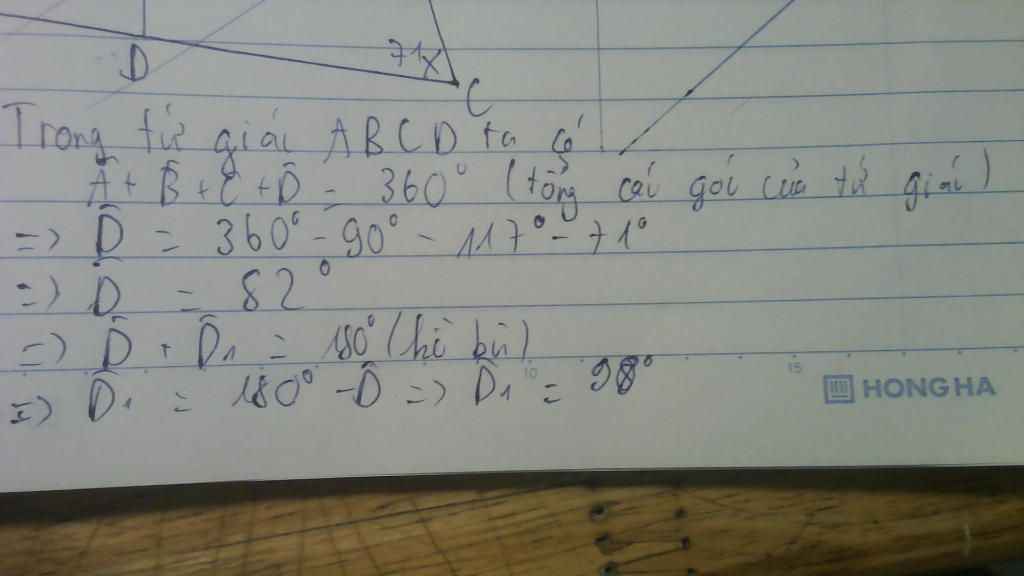 71
D
C
Trong tứ giái ABCD ta có
Â + B̂ + Ĉ + D̂ = 360° (tổng cái gói của tứ giái)
=> D̂ = 360° - 90° - 117° - 71°
=> D̂ = 82°
=> D̂ + D̂₁ = 180° (kề bù)
=> D̂₁ = 180° - D̂ => D̂₁ = 98°
10
15
HONG HA